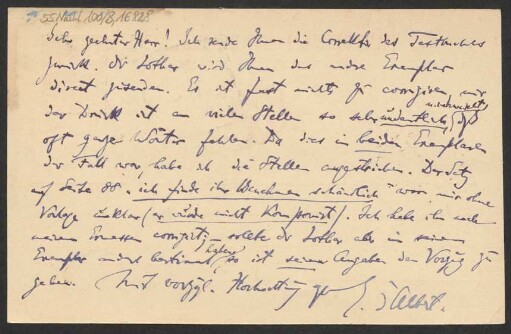 55 Nachl 100/B,1682B
Sehr geehrter Herr! Ich sende Ihnen die Correktur des Textbuches
zurück. Dr Lothar wird Ihnen das andre Exemplar
direct zusenden. Es ist fast nichts zu corrigiren, nur
der Druck ist an vielen Stellen so sehr undeutlich, daß
oft ganze Wörter fehlen. Da dies in beiden Exemplaren
der Fall war, habe ich die Stellen angestrichen. Der Satz
auf Seite 88 „ich finde ihr Benehmen schändlich" war mir ohne
Vorlage unklar (er wurde nicht komponirt). Ich habe ihn nach
meinem Ermessen corrigirt; sollte Dr Lothar aber in seinem
Exemplar anders bestimmt haben, so ist seinen Angaben den Vorzug zu
geben. Mit vorzügl. Hochachtung
E. d'Albert.